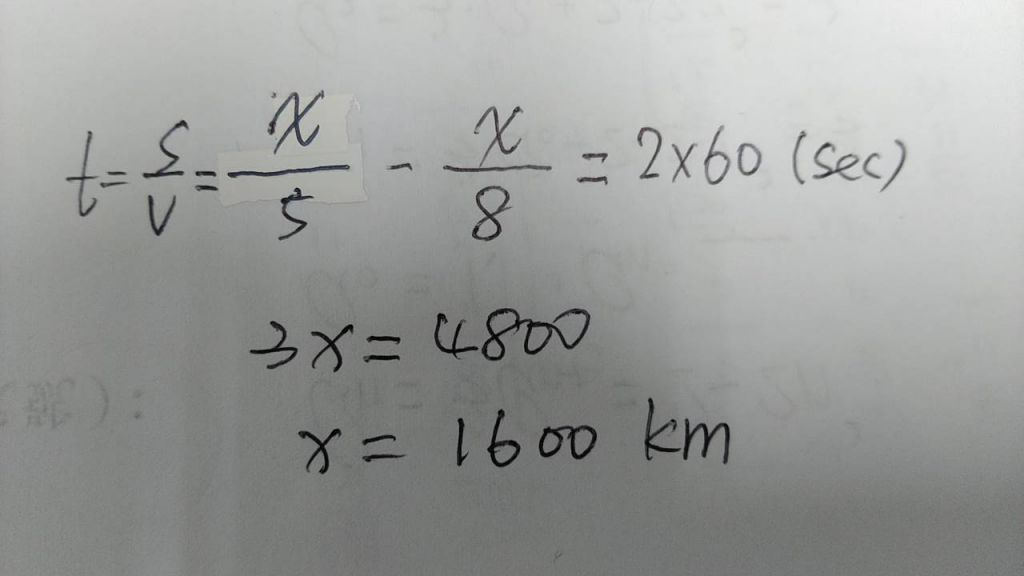 t = S/V = x/5 - x/8 = 2x60 (sec)
3x = 4800
x = 1600 km